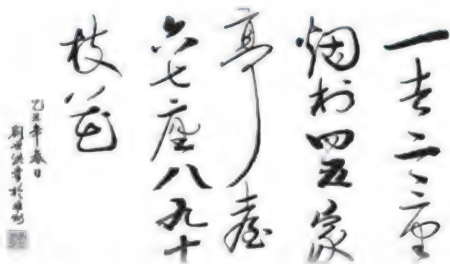 一去二三里
烟村四五家
亭臺
六七座八九十
枝花
乙丑年春日
書於